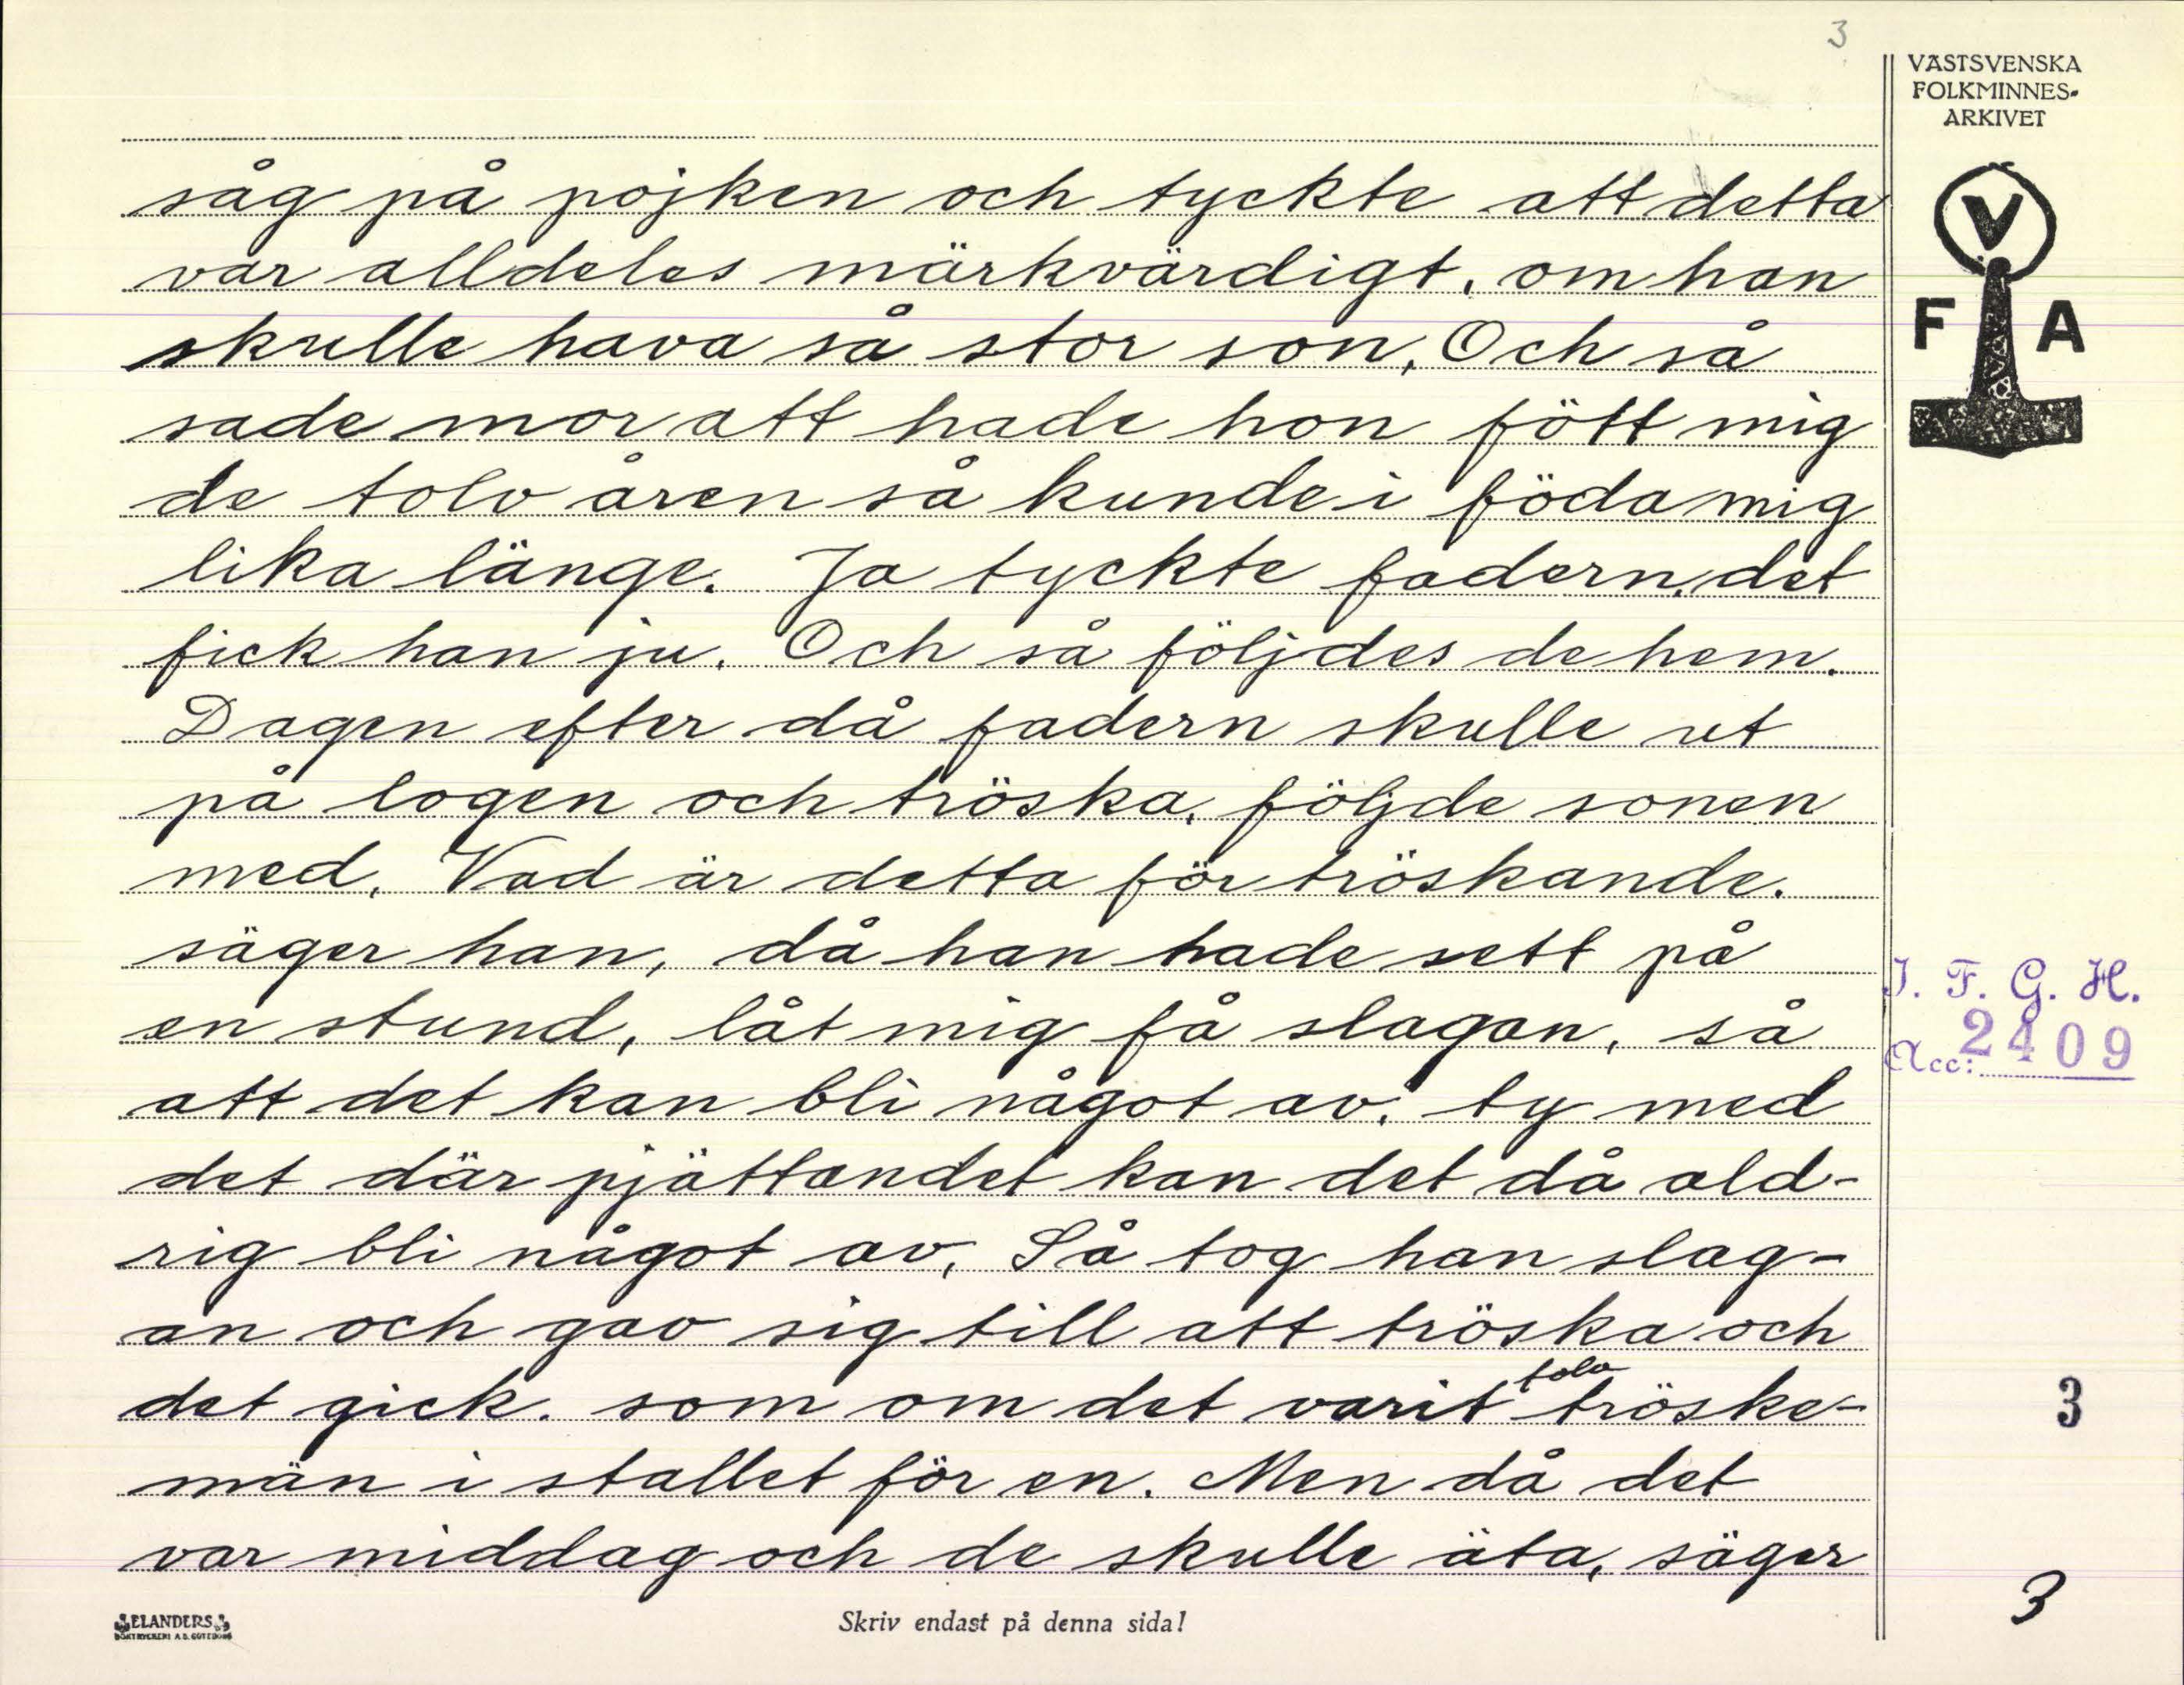 3
VÄSTSVENSKA
FOLKMINNES-
ARKIVET
V
F A
såg på pojken och tyckte att detta
var alldeles märkvärdigt, om han
skulle hava så stor son. Och så
sade mor att hade hon fött mig
de tolv åren så kunde i föda mig
lika länge. Ja tyckte fadern, det
fick han ju. Och så följdes de hem.
Dagen efter då fadern skulle ut
på logen och tröska, följde sonen
med. Vad är detta för tröskande.
säger han, då han hade sett på
en stund, låt mig få slagan, så
att det kan bli något av, ty med
det där pjättandet kan det då ald-
rig bli något av. Så tog han slag-
an och gav sig till att tröska och
det gick. som om det varit tolv tröske-
män i stallet för en. Men då det
var middag och de skulle äta, säger
I. F. G. H.
Acc: 2409
3
3
ELANDERS
BOKTRYCKERI A.B. GÖTEBORG
Skriv endast på denna sida!